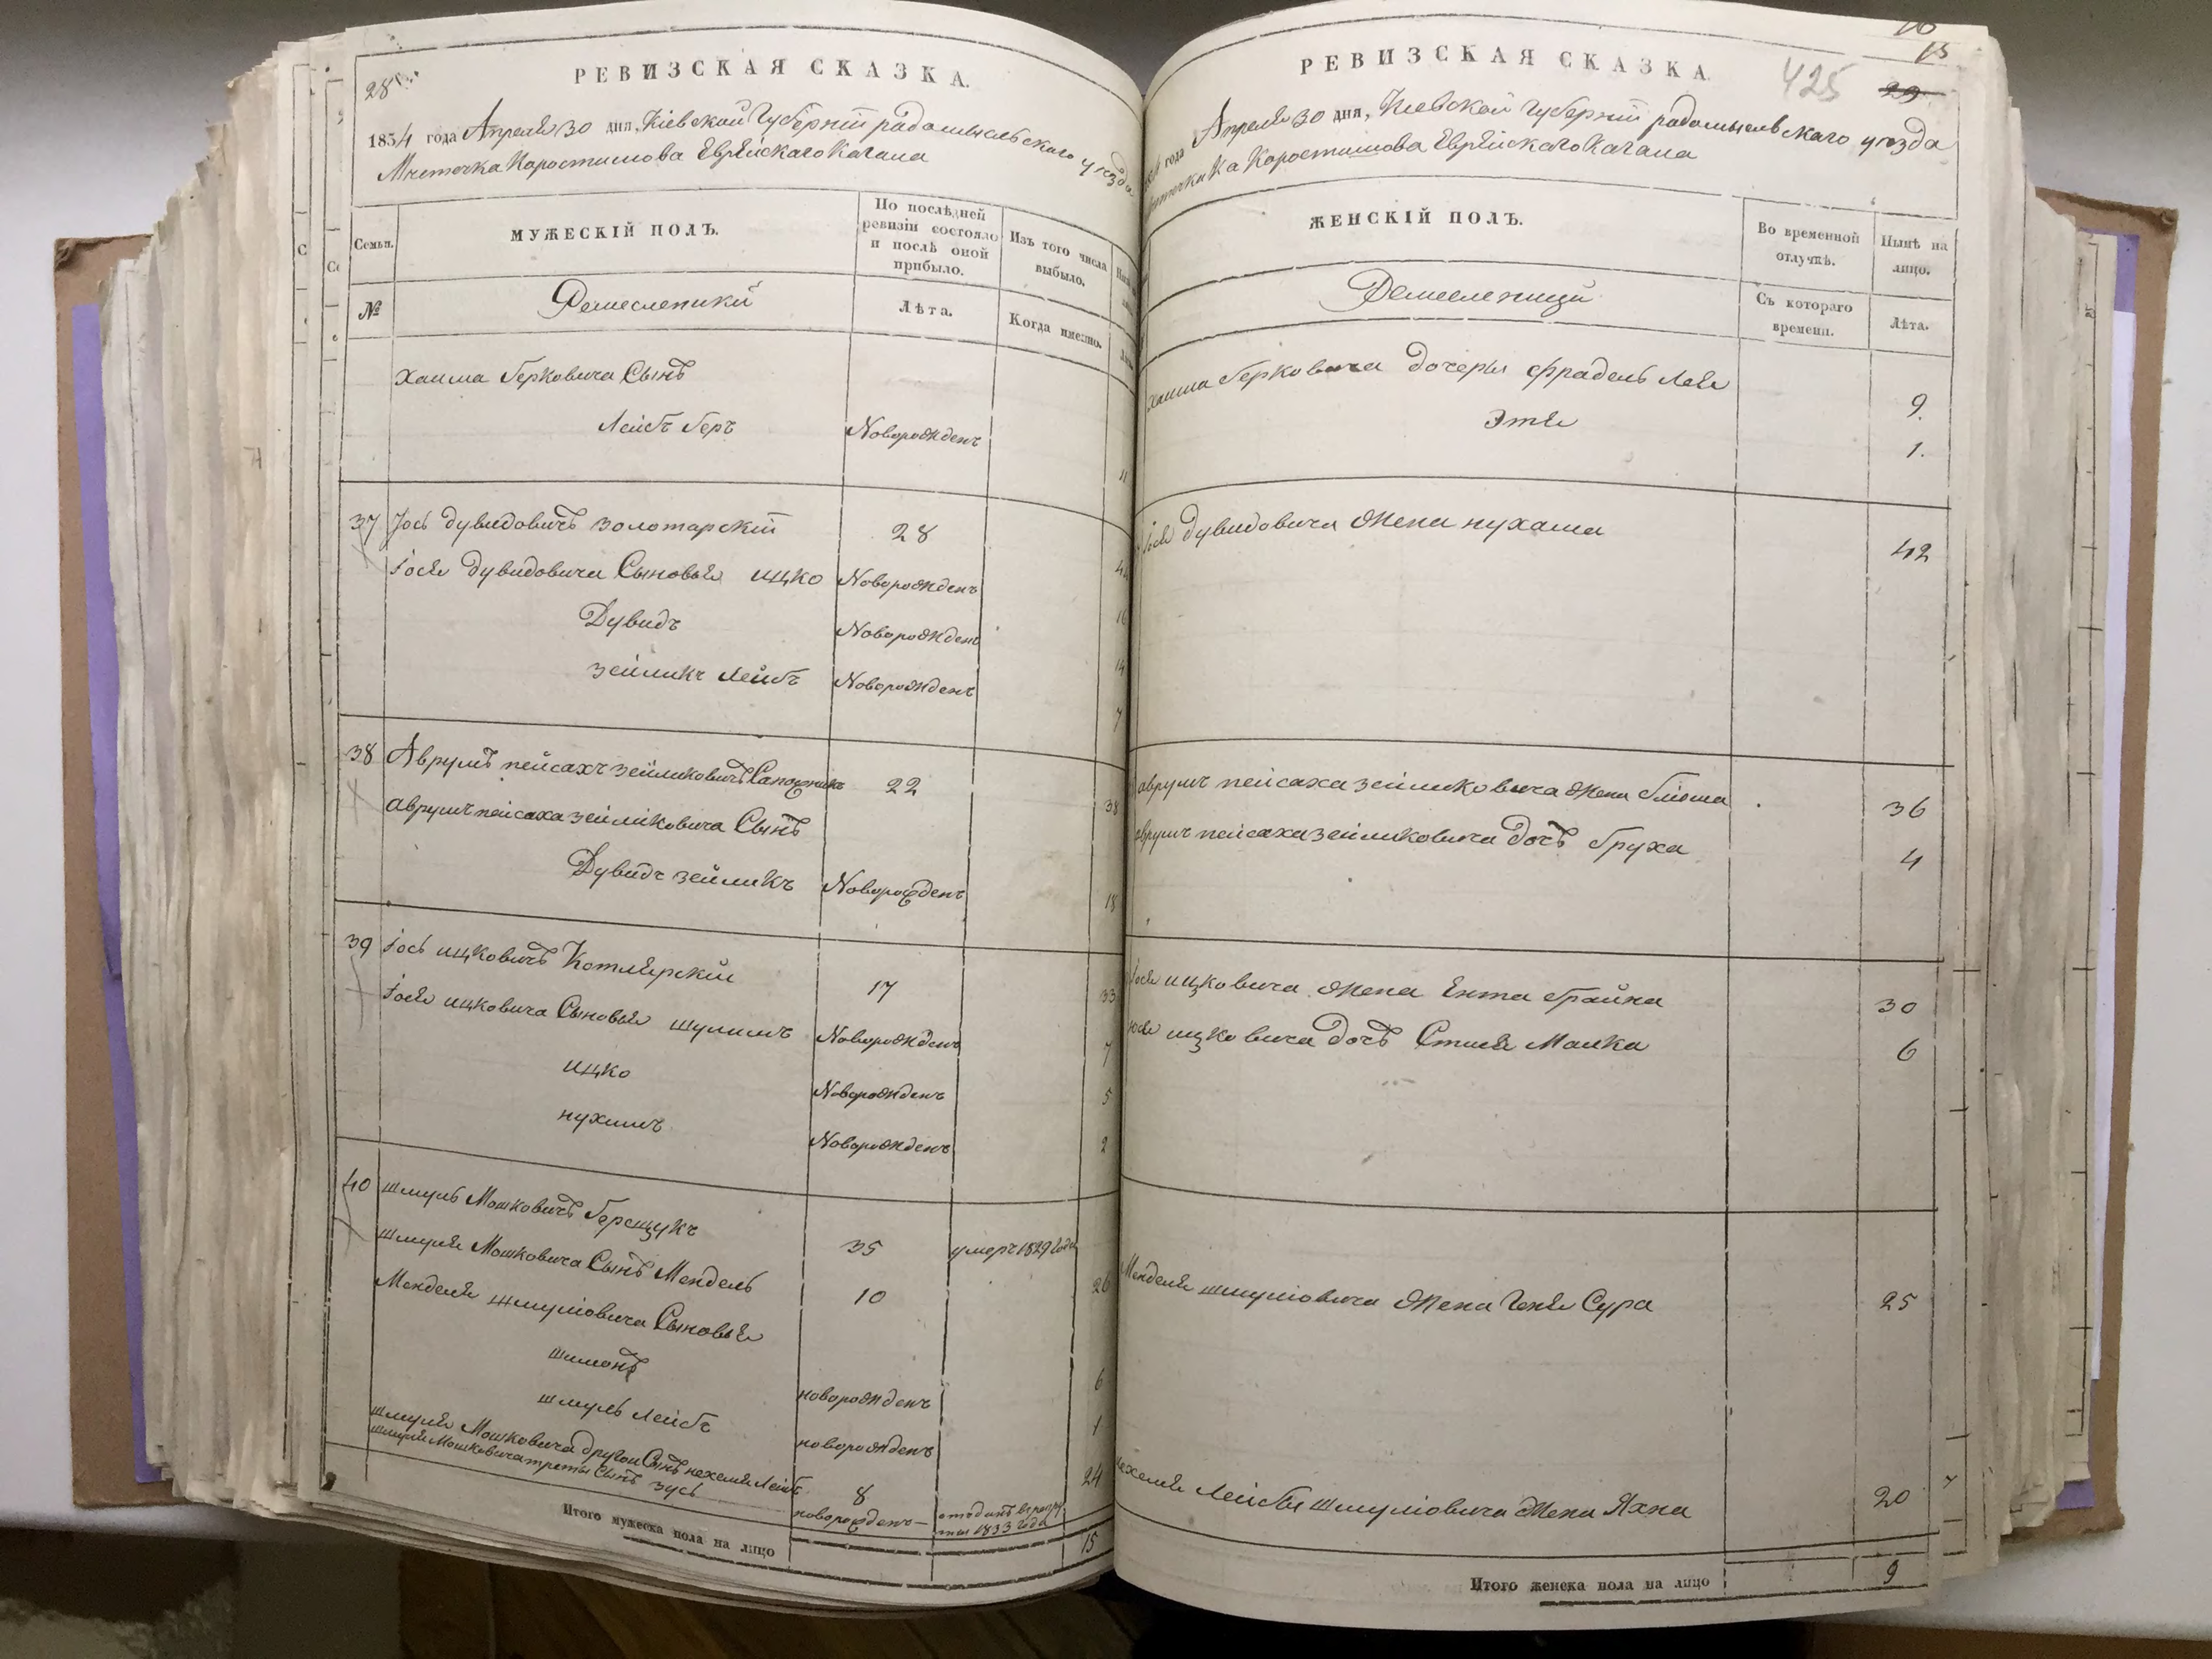 28
РЕВИЗСКАЯ СКАЗКА.
1834 года Апреля 30 дня, Кіевской Губерніи радомысльскаго уезда
Местечка Коростишова Еврейскаго Кагала
Семьи.
МУЖЕСКІЙ ПОЛЪ.
По послѣдней ревизіи состояло и послѣ оной прибыло.
Изъ того числа выбыло.
№
Ремесленики
Лѣта.
Когда именно.
хаима берковича Сынъ
Лейбъ беръ Новорожденъ
37 Іось дувидовичъ золотарскій 28
Іося дувидовича Сыновья ицко Новорожденъ
16
Дувидъ Новорожденъ
14
зейликъ лейбъ Новорожденъ
7
38 Аврумъ пейсахъ зейликовичъ Сапожникъ 22
38
аврумъ пейсаха зейликовича Сынъ
Дувидъ зейликъ Новорожденъ
18
39 Іось ицковичъ Котлярскій 17
33
Іося ицковича Сыновья шулимъ Новорожденъ
7
ицко Новорожденъ
5
нухимъ Новорожденъ
2
40 шмуль Мошковичъ борщукъ 35 умеръ 1829 года
шмуля Мошковича Сынъ Мендель 10
26
Менделя шмуліовича Сыновья
шимонъ новорожденъ
6
шмуль лейбъ новорожденъ
1
шмуля Мошковича другой Сынъ нехемя лейбъ 8
24
шмуля Мошковича треты Сынъ зусь новорожденъ отданъ въ рекруты 1833 года
Итого мужеска пола на лицо 15
16
15
29
425
РЕВИЗСКАЯ СКАЗКА
года Апреля 30 дня, Кіевской Губерніи радомысльскаго уезда
Коростишова Еврейскаго Кагала
ЖЕНСКІЙ ПОЛЪ.
Во временной отлучкѣ.
Нынѣ на лицо.
Ремесленици
Съ котораго времени.
Лѣта.
хаима берковича дочеры фрадель лея 9.
Этя 1.
Іося дувидовича жена нухама 42
аврумъ пейсаха зейликовича жена блюма 36
аврумъ пейсаха зейликовича дочъ бруха 4
Іося ицковича жена Ента брайна 30
Іося ицковича дочъ Стися Малка 6
Менделя шмуліовича жена Геня Сура 25
нехемя лейбы шмуліовича жена Яхна 20
Итого женска пола на лицо 9